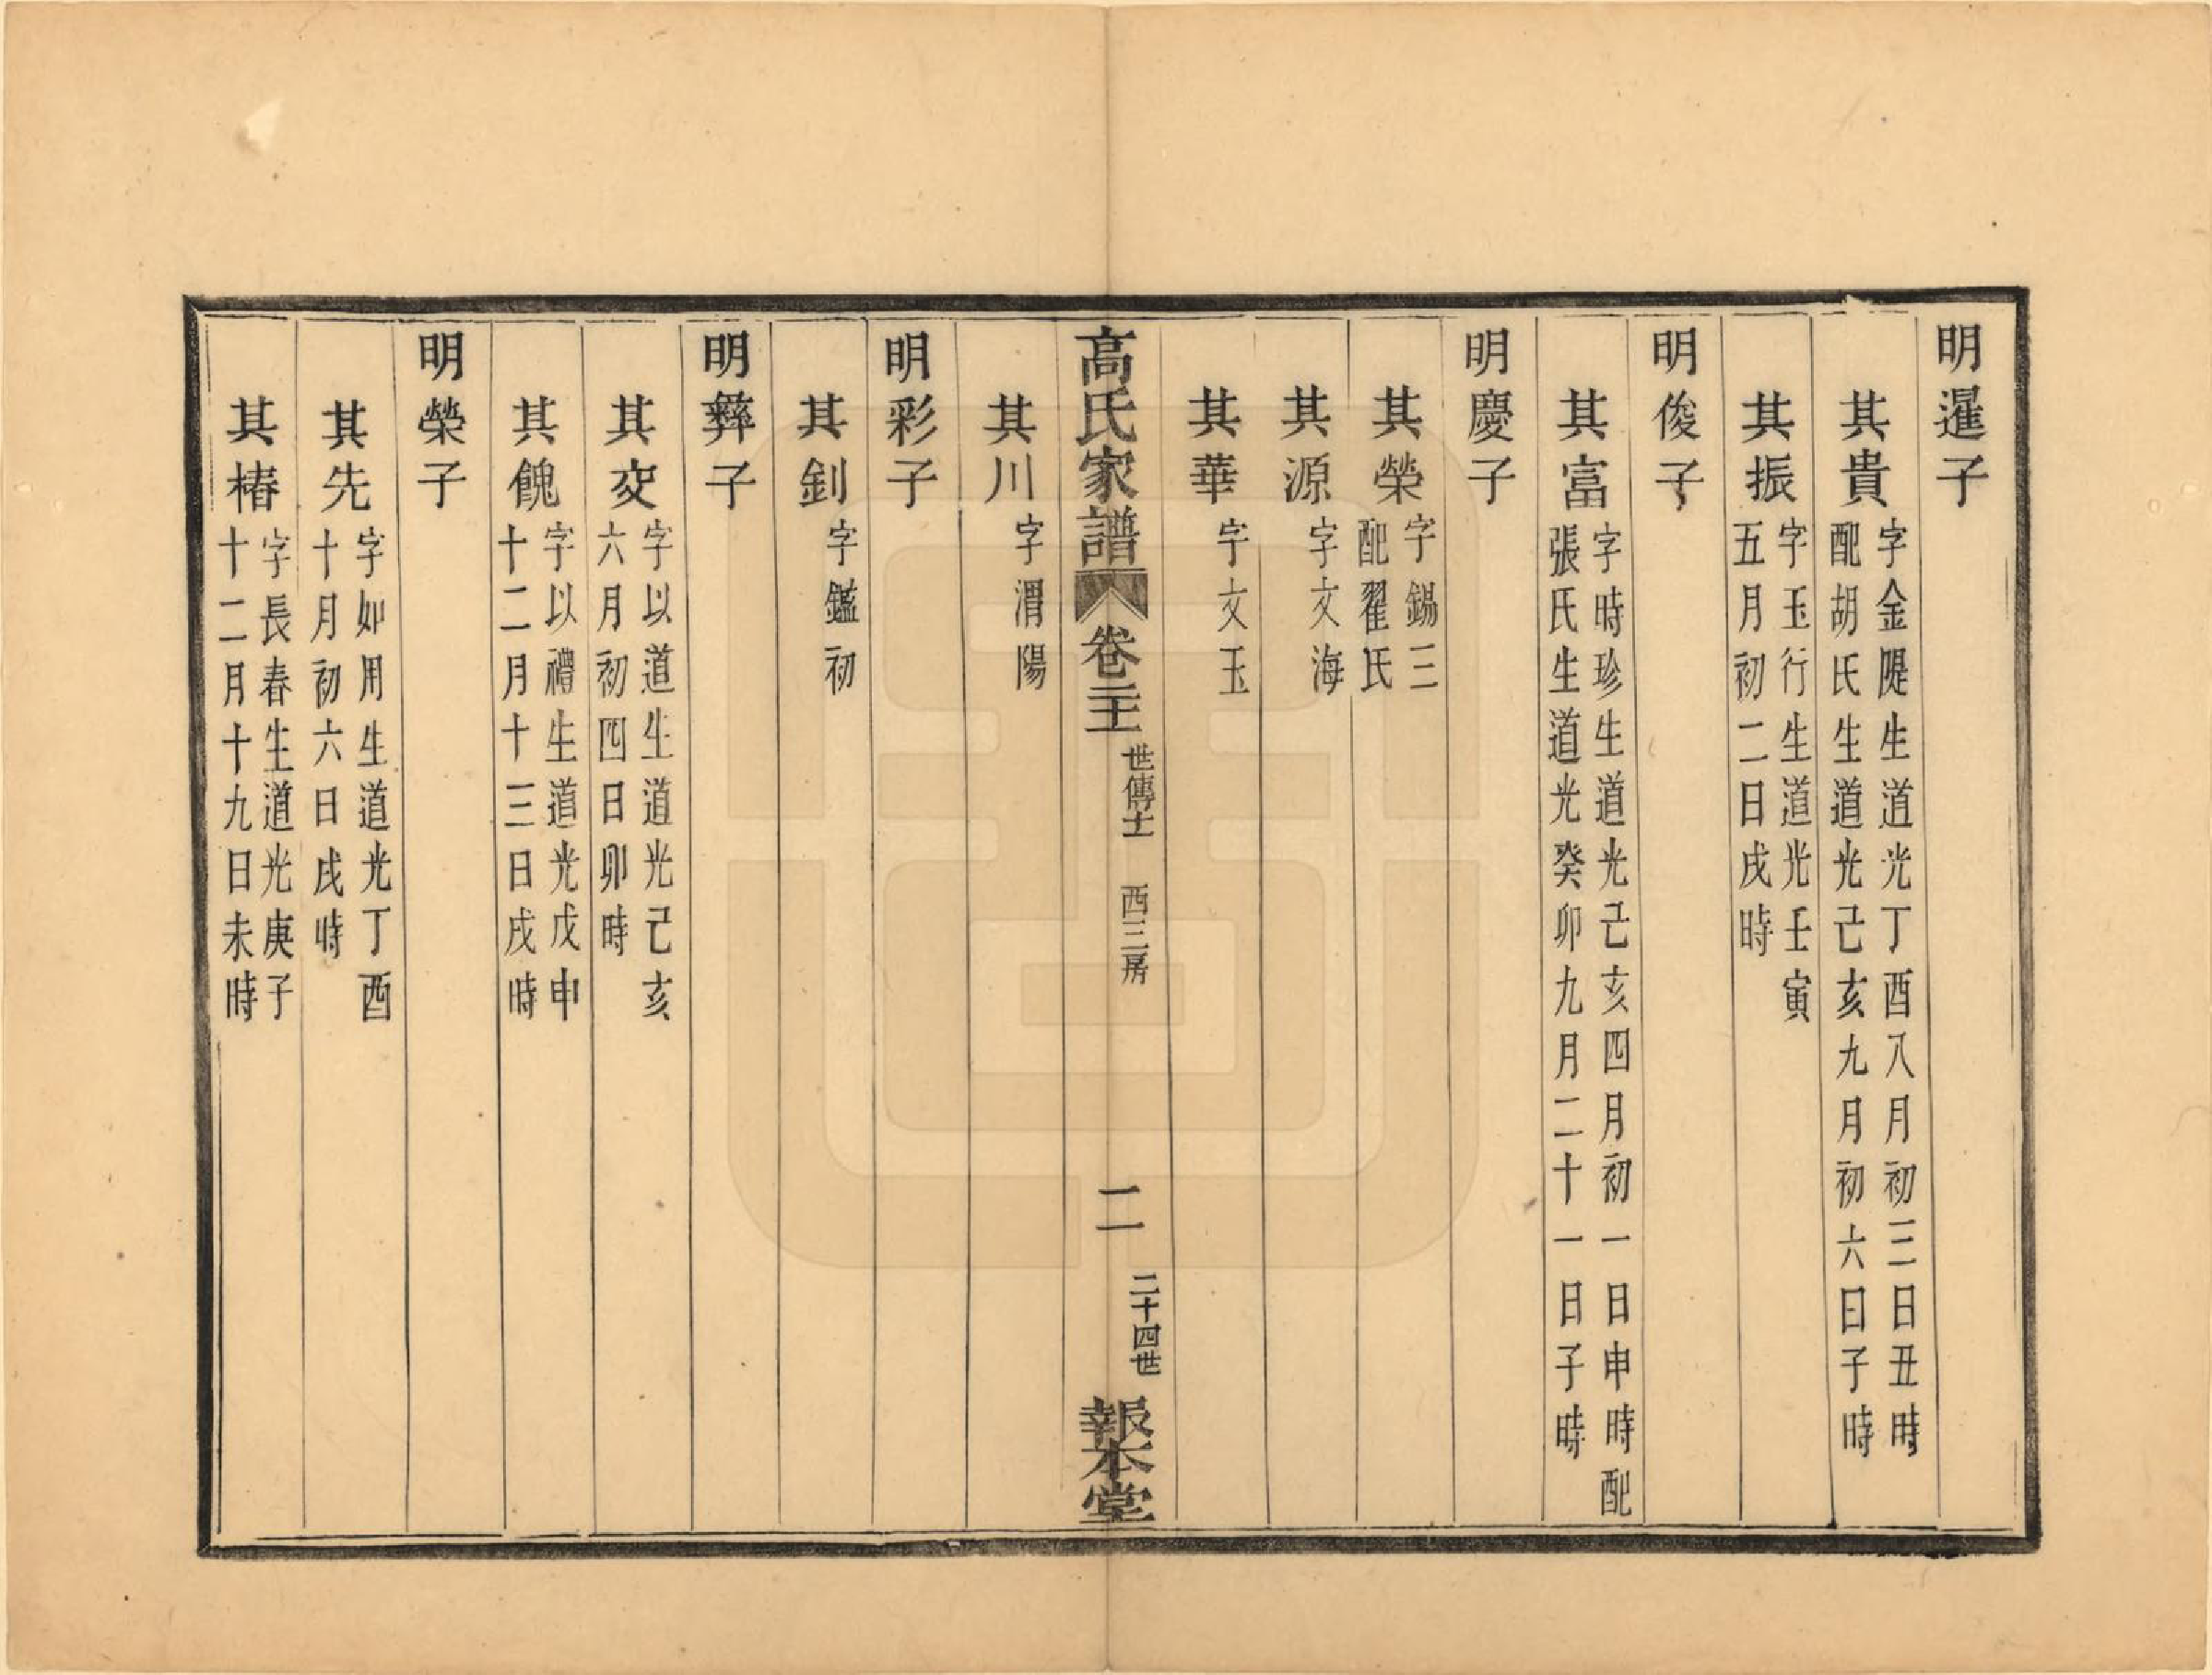 明暹子
其貴
字金隄生道光丁酉八月初三日丑時
配胡氏生道光己亥九月初六日子時
其振
字玉行生道光壬寅
五月初二日戌時
明俊子
其富
字時珍生道光己亥四月初一日申時配
張氏生道光癸卯九月二十一日子時
明慶子
其榮
字錫三
配翟氏
其源
字文海
其華
字文玉
高氏家譜 卷二十
世傳十 西三房
二
二十四世
報本堂
其川
字渭陽
明彩子
其釗
字鑑初
明彝子
其交
字以道生道光己亥
六月初四日卯時
其餽
字以禮生道光戊申
十二月十三日戌時
明榮子
其先
字如用生道光丁酉
十月初六日戌時
其椿
字長春生道光庚子
十二月十九日未時